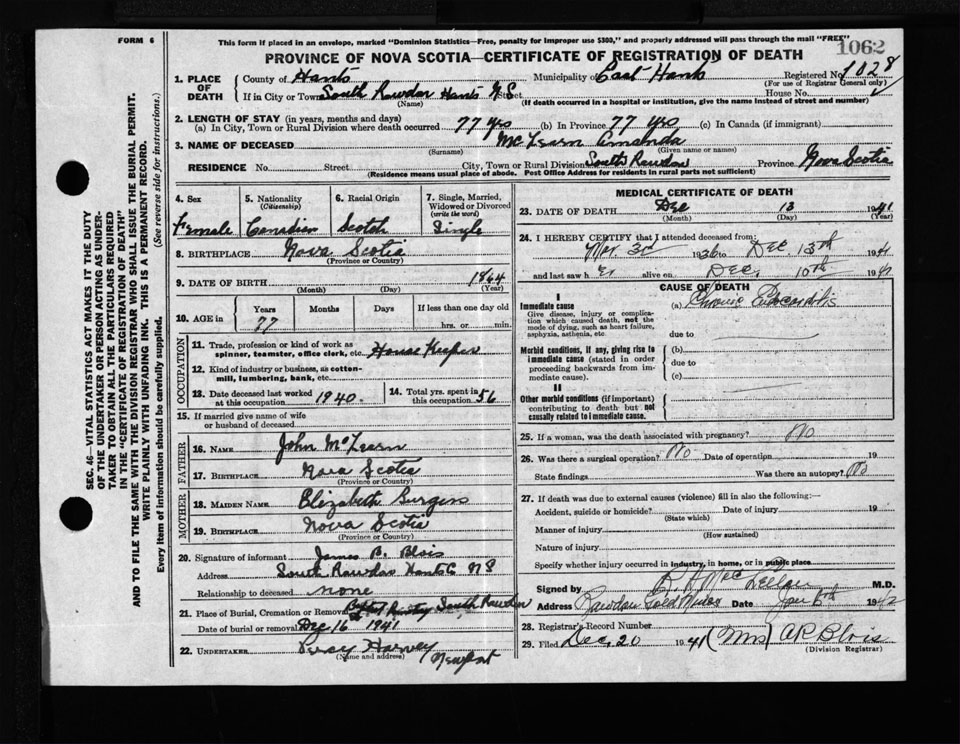 FORM 6
This form if placed in an envelope, marked "Dominion Statistics—Free, penalty for improper use $300," and properly addressed will pass through the mail "FREE"
1062
PROVINCE OF NOVA SCOTIA—CERTIFICATE OF REGISTRATION OF DEATH
1. PLACE OF DEATH
County of Hants Municipality of East Hants Registered No. 1028
(For use of Registrar General only)
If in City or Town South Rawdon Hants N S Street House No.
(Name) (If death occurred in a hospital or institution, give the name instead of street and number)
2. LENGTH OF STAY (in years, months and days)
(a) In City, Town or Rural Division where death occurred 77 yrs (b) In Province 77 yrs (c) In Canada (if immigrant)
3. NAME OF DECEASED McLearn Amanda
(Surname) (Given name or names)
RESIDENCE No. Street City, Town or Rural Division South Rawdon Province Nova Scotia
(Residence means usual place of abode. Post Office Address for residents in rural parts not sufficient)
4. Sex
Female
5. Nationality
(Citizenship)
Canadian
6. Racial Origin
Scotch
7. Single, Married, Widowed or Divorced
(write the word)
Single
8. BIRTHPLACE Nova Scotia
(Province or Country)
9. DATE OF BIRTH 1864
(Month) (Day) (Year)
10. AGE in Years Months Days If less than one day old
77 hrs. or min.
OCCUPATION
11. Trade, profession or kind of work as
spinner, teamster, office clerk, etc. House Keeper
12. Kind of industry or business, as cotton-
mill, lumbering, bank, etc.
13. Date deceased last worked
at this occupation 1940.
14. Total yrs. spent in
this occupation 56
15. If married give name of wife
or husband of deceased
FATHER
16. NAME John McLearn
17. BIRTHPLACE Nova Scotia
(Province or Country)
MOTHER
18. MAIDEN NAME Elizabeth
19. BIRTHPLACE Nova Scotia
(Province or Country)
20. Signature of informant James B. Blois
Address South Rawdon Hants Co N S
Relationship to deceased none
21. Place of Burial, Cremation or Removal South Rawdon
Date of burial or removal Dec 16th 1941
22. UNDERTAKER Percy Harvey
(Name and address) Newport
MEDICAL CERTIFICATE OF DEATH
23. DATE OF DEATH Dec 13 1941
(Month) (Day) (Year)
24. I HEREBY CERTIFY that I attended deceased from:
Mar. 3rd 1936 to Dec. 13th 1941
and last saw h er alive on Dec. 10th 1941
CAUSE OF DEATH
I
Immediate cause (a) Chronic
Give disease, injury or complication which caused death, not the mode of dying, such as heart failure, asphyxia, asthenia, etc.
due to
Morbid conditions, if any, giving rise to immediate cause (stated in order proceeding backwards from immediate cause).
(b)
due to
(c)
II
Other morbid conditions (if important) contributing to death but not causally related to immediate cause.
25. If a woman, was the death associated with pregnancy? No
26. Was there a surgical operation? No Date of operation 19
State findings Was there an autopsy? No
27. If death was due to external causes (violence) fill in also the following:—
Accident, suicide or homicide? Date of injury 19
(State which)
Manner of injury
(How sustained)
Nature of injury
Specify whether injury occurred in industry, in home, or in public place
Signed by R. A. MacLellan M.D.
Address Rawdon Gold Mines Date Jan 6th 1942
28. Registrar's Record Number
29. Filed Dec, 20 1941 (Mrs) A P Blois
(Division Registrar)
SEC. 46—VITAL STATISTICS ACT MAKES IT THE DUTY
OF THE UNDERTAKER OR PERSON ACTING AS UNDER-
TAKER TO OBTAIN ALL THE PARTICULARS REQUIRED
IN THE "CERTIFICATE OF REGISTRATION OF DEATH"
AND TO FILE THE SAME WITH THE DIVISION REGISTRAR WHO SHALL ISSUE THE BURIAL PERMIT.
WRITE PLAINLY WITH UNFADING INK. THIS IS A PERMANENT RECORD.
Every item of information should be carefully supplied. (See reverse side for instructions.)